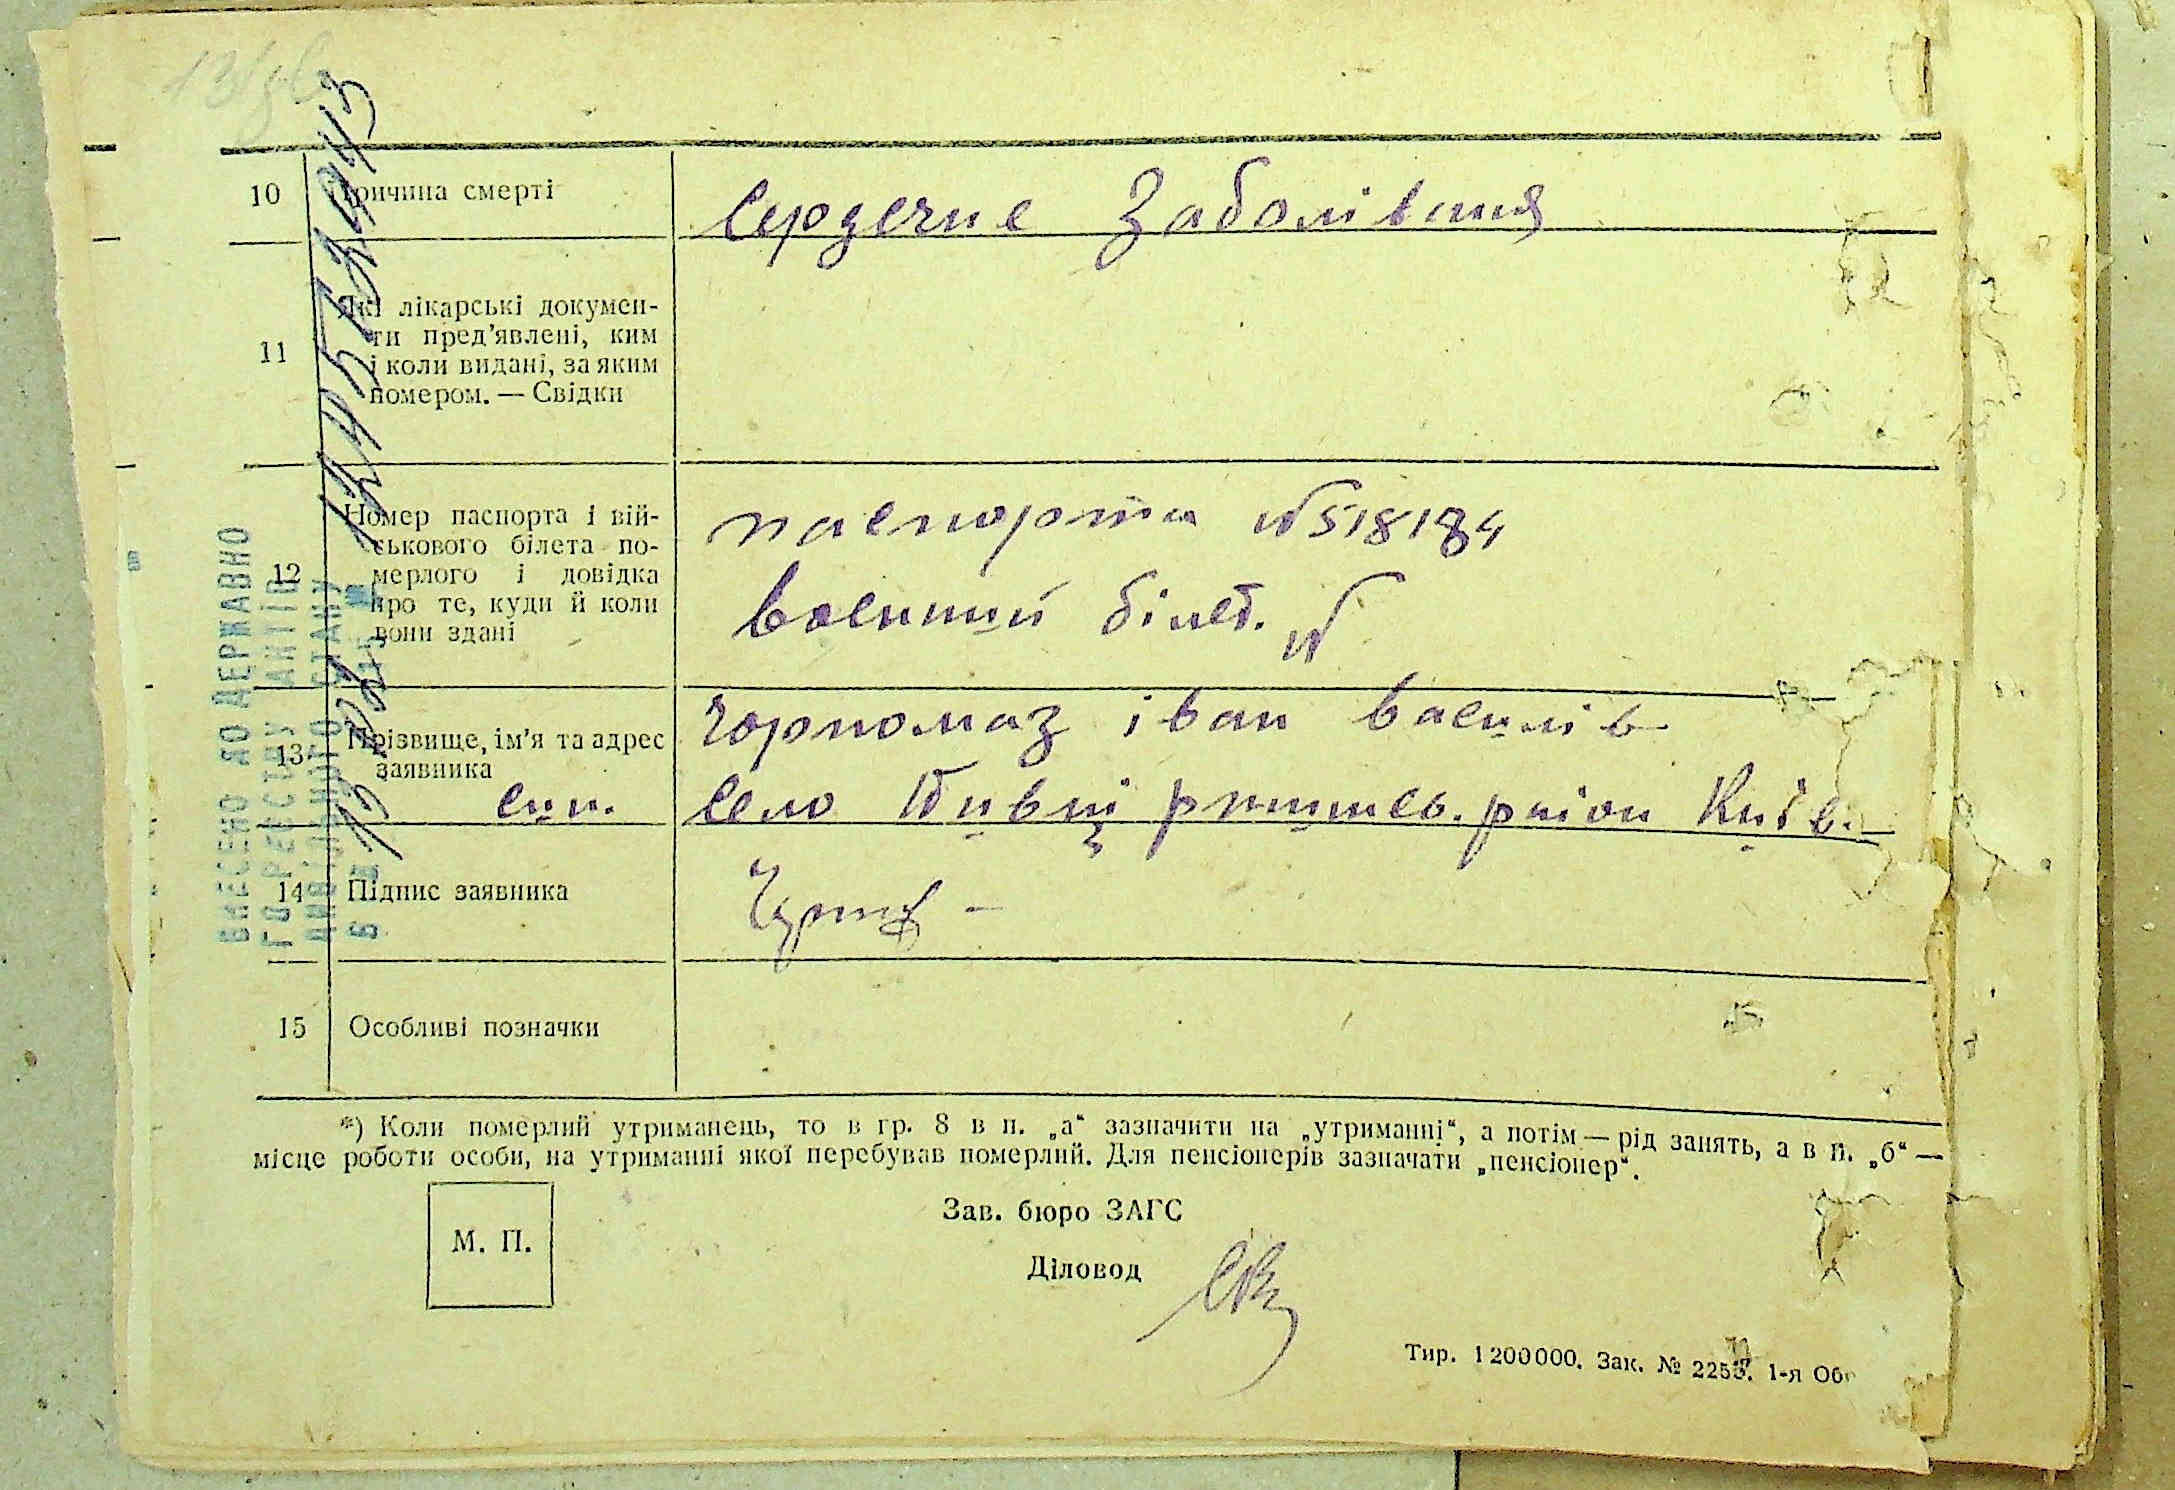 10 Причина смерті Сердечне Заболівання
11 Які лікарські докумен-
ти пред'явлені, ким
і коли видані, за яким
номером. — Свідки
12 Номер паспорта і вій-
ськового білета по-
мерлого і довідка
про те, куди й коли
вони здані
паспорта №518184
Военний білет. №
13 Прізвище, ім'я та адрес
заявника
син.
Чорномаз іван василів
село район Київ.
14 Підпис заявника
15 Особливі позначки
*) Коли померлий утриманець, то в гр. 8 в п. „а“ зазначити на „утриманні“, а потім — рід занять, а в п. „б“ —
місце роботи особи, на утриманні якої перебував померлий. Для пенсіонерів зазначати „пенсіонер“.
М. П.
Зав. бюро ЗАГС
Діловод
Тир. 1200000. Зак. № 1-я
ВНЕСЕНО ДО ДЕРЖАВНО
ГО РЕЄСТРУ АКТІВ
ЦИВІЛЬНОГО СТАНУ